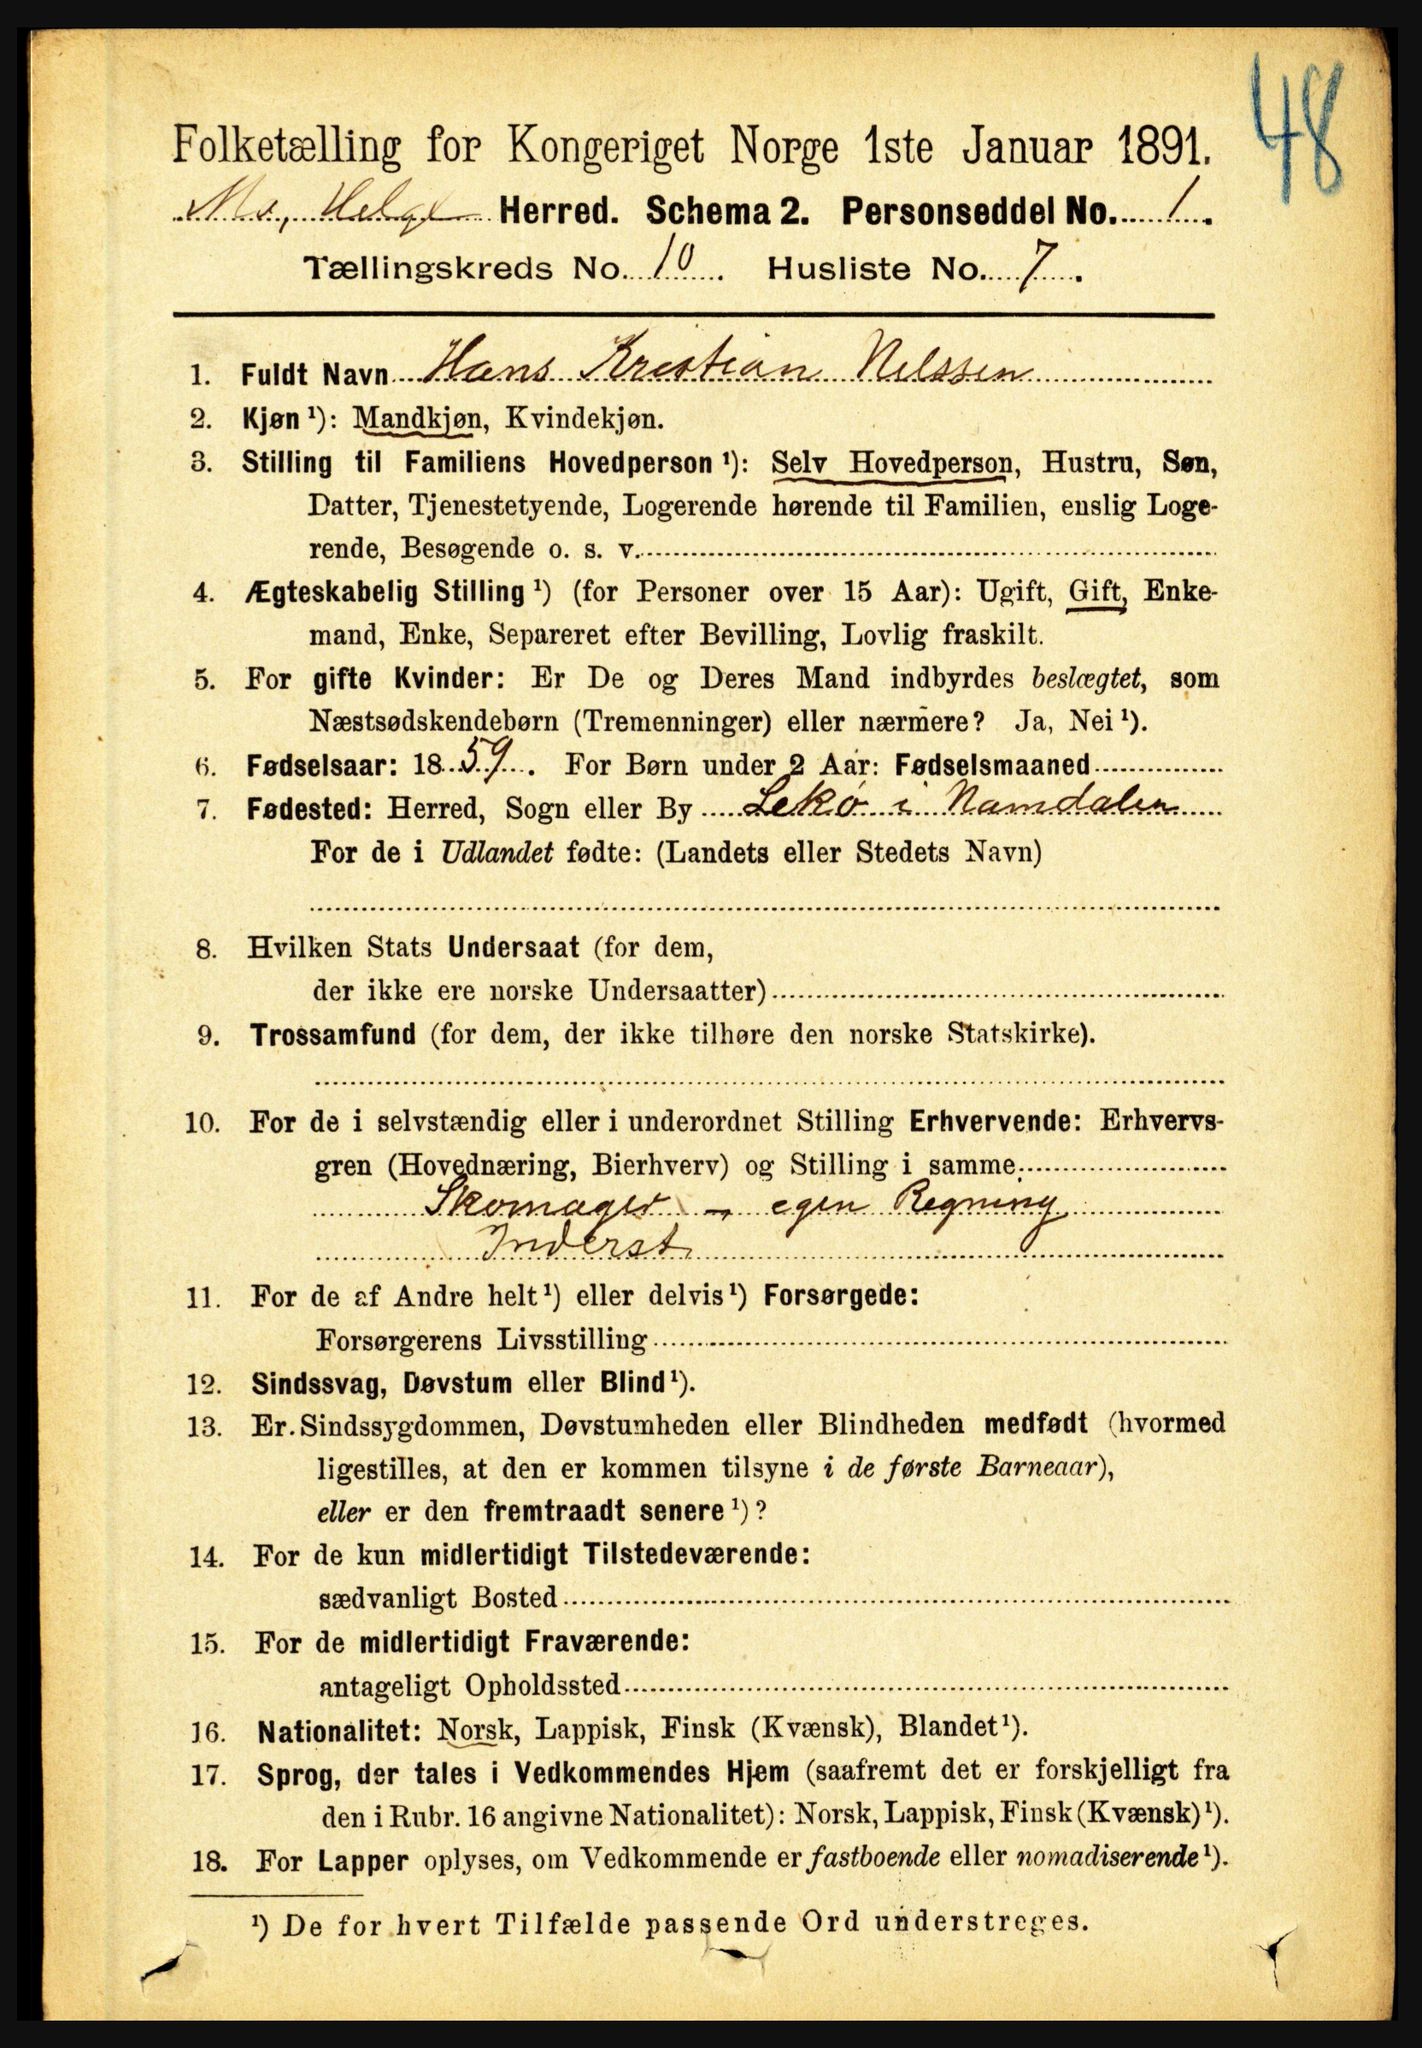 48
Folketælling for Kongeriget Norge 1ste Januar 1891.
Mo, Helgl Herred. Schema 2. Personseddel No. 1.
Tællingskreds No. 10. Husliste No. 7.
1. Fuldt Navn Hans Kristian Nilssen
2. Kjøn ¹): Mandkjøn, Kvindekjøn.
3. Stilling til Familiens Hovedperson ¹): Selv Hovedperson, Hustru, Søn,
Datter, Tjenestetyende, Logerende hørende til Familien, enslig Loge-
rende, Besøgende o. s. v.
4. Ægteskabelig Stilling ¹) (for Personer over 15 Aar): Ugift, Gift, Enke-
mand, Enke, Separeret efter Bevilling, Lovlig fraskilt.
5. For gifte Kvinder: Er De og Deres Mand indbyrdes beslægtet, som
Næstsødskendebørn (Tremenninger) eller nærmere? Ja, Nei ¹).
6. Fødselsaar: 1859. For Børn under 2 Aar: Fødselsmaaned
7. Fødested: Herred, Sogn eller By Lekø i Namdalen
For de i Udlandet fødte: (Landets eller Stedets Navn)
8. Hvilken Stats Undersaat (for dem,
der ikke ere norske Undersaatter)
9. Trossamfund (for dem, der ikke tilhøre den norske Statskirke).
10. For de i selvstændig eller i underordnet Stilling Erhvervende: Erhvervs-
gren (Hovednæring, Bierhverv) og Stilling i samme
Skomager – egen Regning
Inderst
11. For de af Andre helt ¹) eller delvis ¹) Forsørgede:
Forsørgerens Livsstilling
12. Sindssvag, Døvstum eller Blind ¹).
13. Er Sindssygdommen, Døvstumheden eller Blindheden medfødt (hvormed
ligestilles, at den er kommen tilsyne i de første Barneaar),
eller er den fremtraadt senere ¹)?
14. For de kun midlertidigt Tilstedeværende:
sædvanligt Bosted
15. For de midlertidigt Fraværende:
antageligt Opholdssted
16. Nationalitet: Norsk, Lappisk, Finsk (Kvænsk), Blandet ¹).
17. Sprog, der tales i Vedkommendes Hjem (saafremt det er forskjelligt fra
den i Rubr. 16 angivne Nationalitet): Norsk, Lappisk, Finsk (Kvænsk) ¹).
18. For Lapper oplyses, om Vedkommende er fastboende eller nomadiserende ¹).
¹) De for hvert Tilfælde passende Ord understreges.